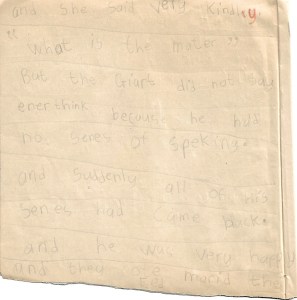 and she said very kindley
"What is the mater"
But the Giant did not say
enerthink becouse he had
no senes of speking
and suddenly all of his
senes had came back
and he was very happy
and they